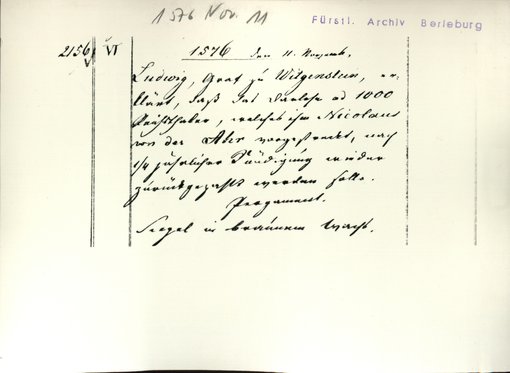 1576 Nov. 11
Fürstl. Archiv Berleburg
2156 VI
1576 den 11. Novemb.
Ludwig, Graf zu Witgenstein, er-
klärt, daß das Darlehn ad 1000
welches ihm Nicolaus
von der vorgestreckt, nach
1/4 jährlicher Kündigung wieder
zurückgezahlt werden solle.
Pergament.
Siegel in braunem Wachs.